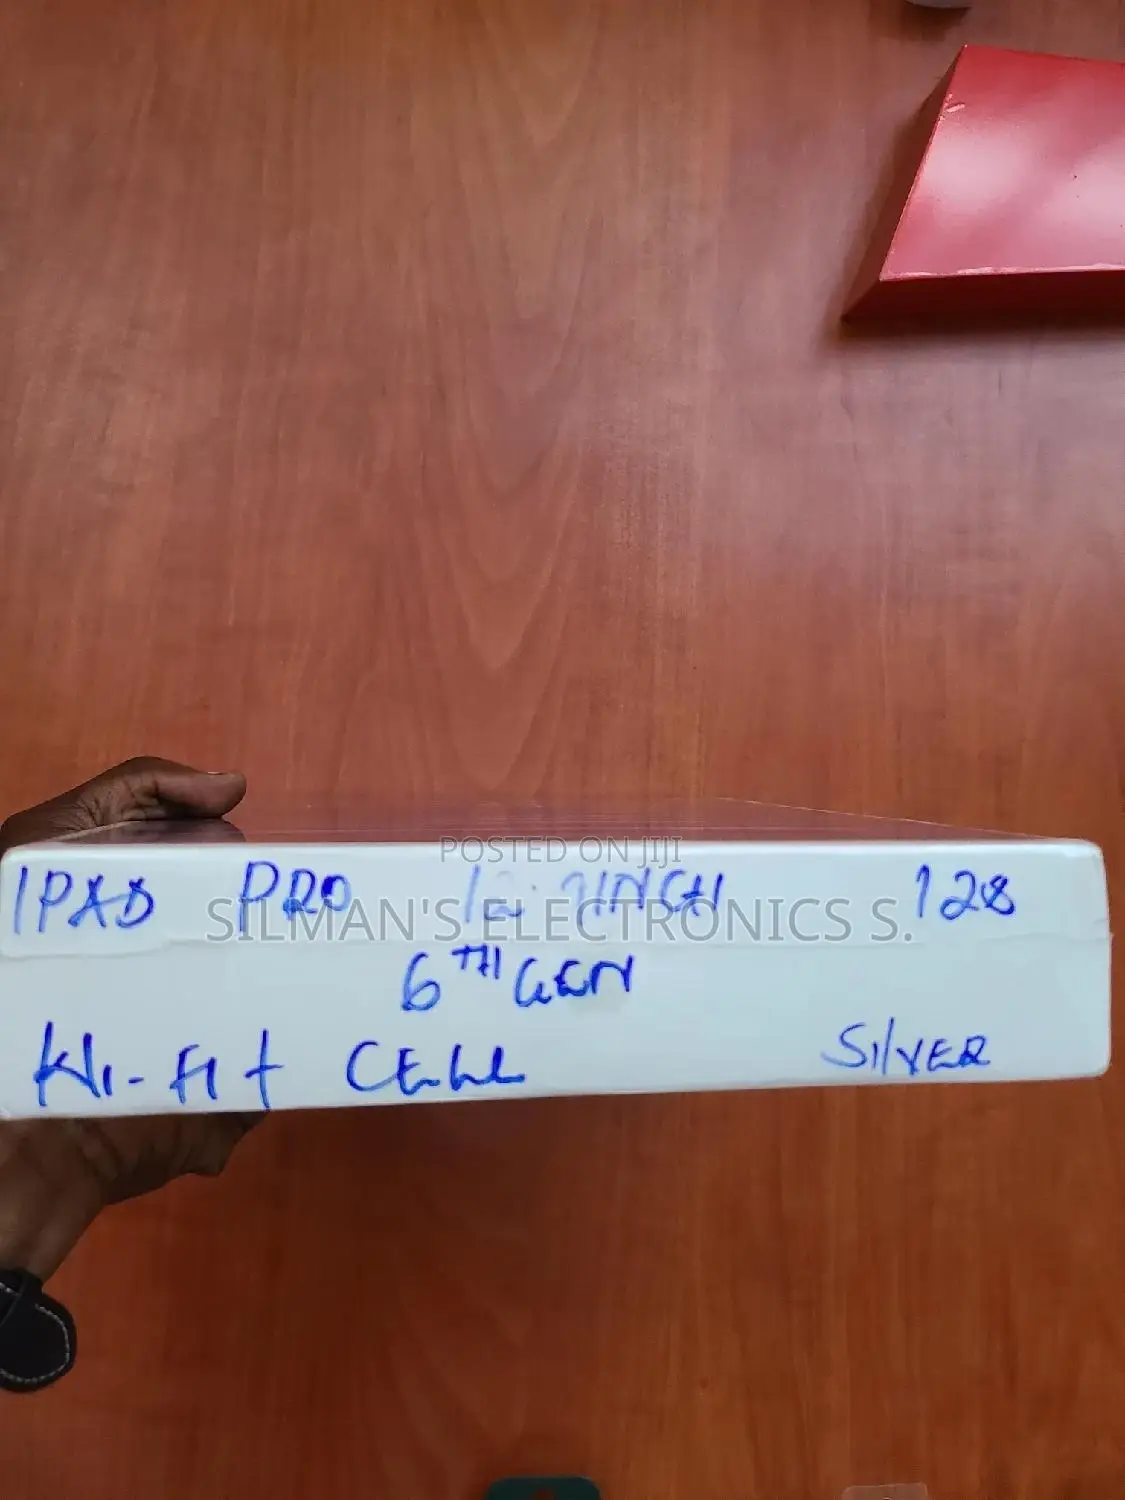 POSTED ON JIJI
IPAD PRO 12.9INCH 128
SILMAN'S ELECTRONICS S.
6TH GEN
WI-FI + CELL SILVER